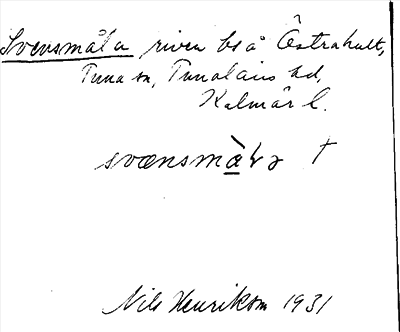 Svensmåla riven bs å Östrahult,
Tuna sn, Tunaläns hd,
Kalmar l.
svænsmàLa †
Nils Henrikson 1931